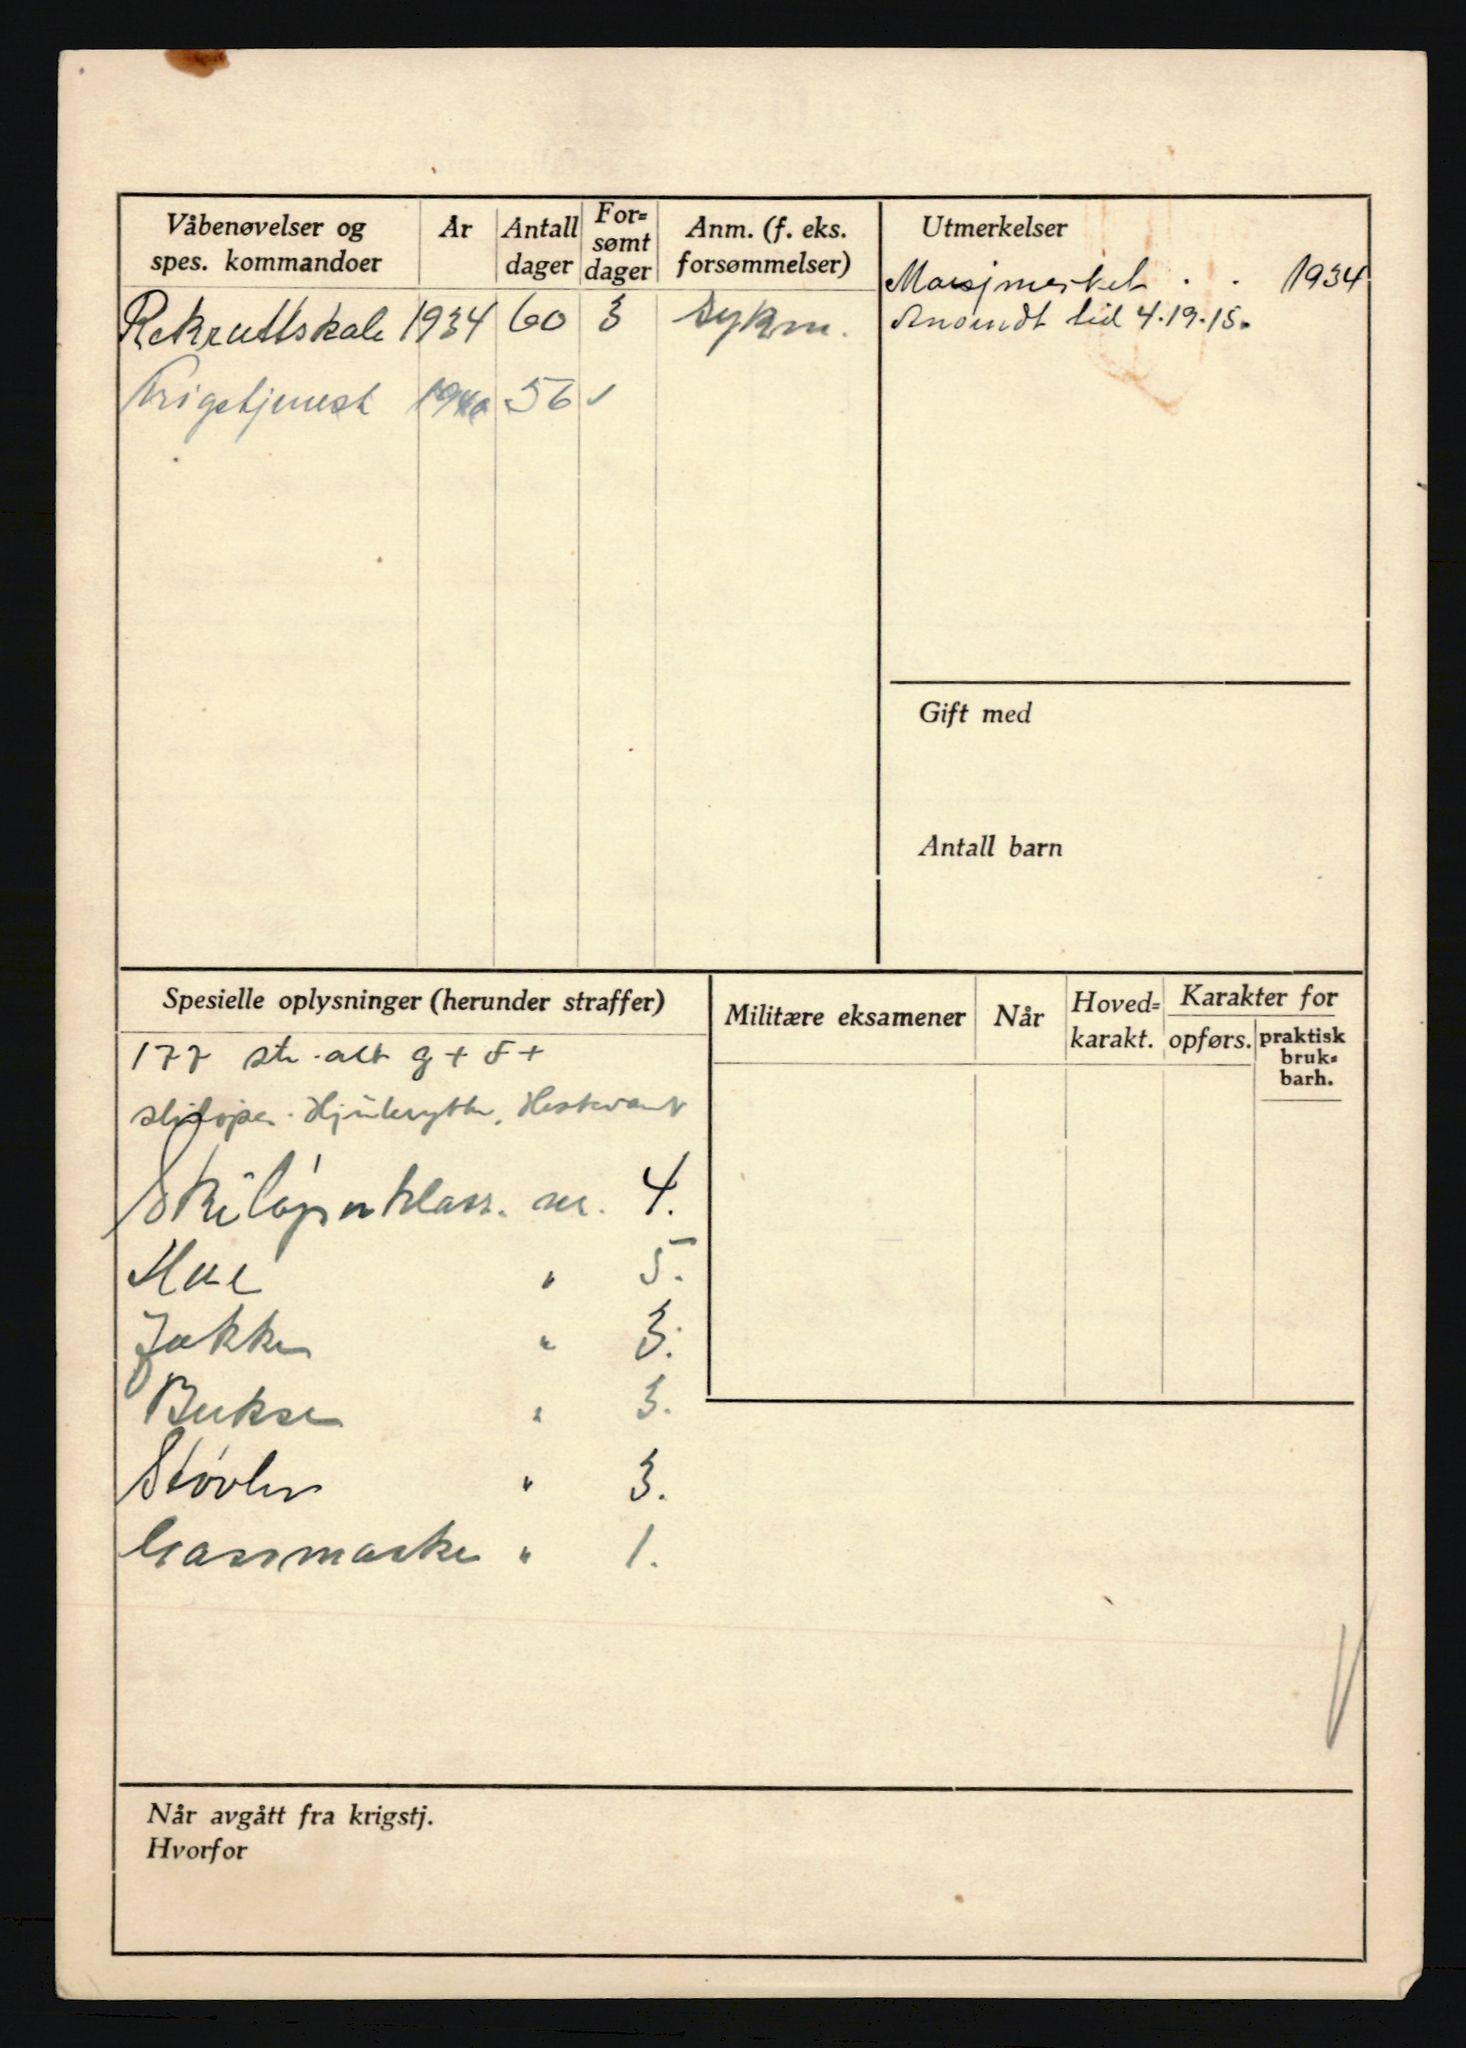 Våbenøvelser og
spes. kommandoer
Ar
Antall
dager
For=
sømt
dager
Anm. (f. eks.
forsømmelser)
Rekruttskole 1934 60 3 sykm.
Krigstjenest 1940 56
Utmerkelser
Marsjmerket . . 1934
Anvendt tid 4.19.15.
Gift med
Antall barn
Spesielle oplysninger (herunder straffer)
177 alt g + 8 +
skiløper. Hjulrytter, Hestevant
Skiløperklass. nr. 4.
Hue " 5.
Jakke " 3.
Bukse " 3.
Støvler " 3.
Gassmaske " 1.
Militære eksamener
Når
Hoved=
karakt.
Karakter for
opførs.
praktisk
bruk=
barh.
Når avgått fra krigstj.
Hvorfor